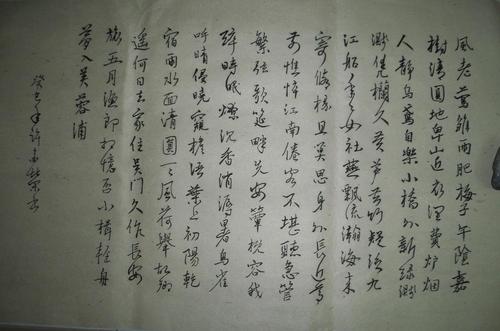 風老鶯雛雨肥梅子午陰嘉
樹清圓地卑山近衣潤費炉烟
人靜烏鳶自樂小橋外新緑濺
濺凭欄久黄芦苦竹疑泛九
江船年年如社燕飄流瀚海来
寄修椽且莫思身外長近尊
前憔悴江南倦客不堪聽急管
繁弦歌筵畔先安簟枕容我
醉時眠燎沉香消溽暑鳥雀
呼晴侵曉窺檐語葉上初陽乾
宿雨水面清圓一一風荷舉故鄉
遙何日去家住吳門久作長安
旅五月漁郎相憶否小楫輕舟
夢入芙蓉浦
癸巳年許